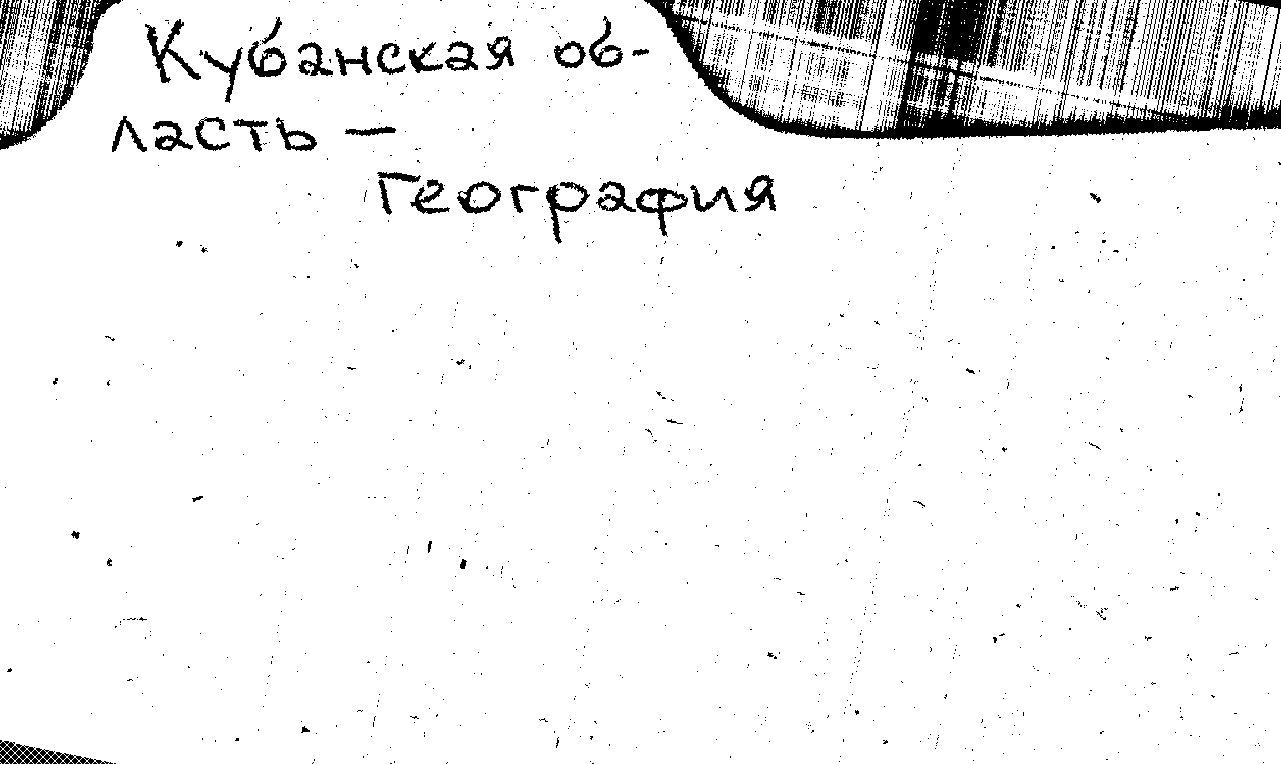 Кубанская об-
ласть —
География